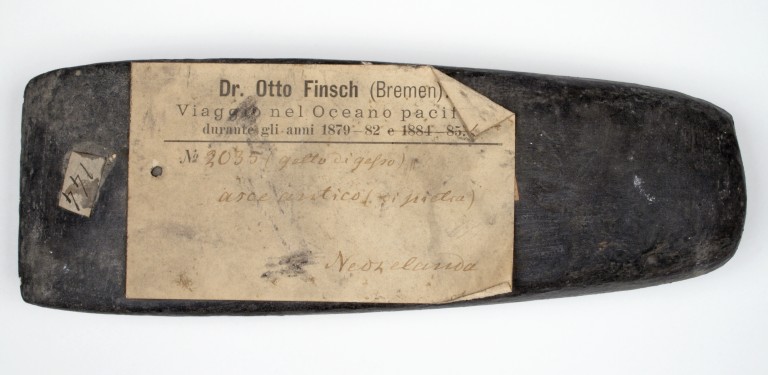 Dr. Otto Finsch (Bremen)
Viaggio nel Oceano pacif
durante gli anni 1879-82 e 1884-85.
No 2035 (getto di gesso)
asce antico (di pietra)
Neozelanda
144